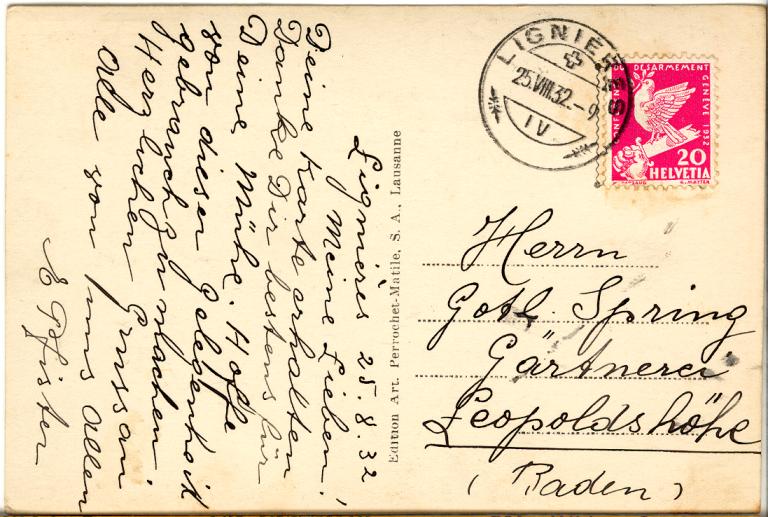 Lignières 25.8.32
Meine Lieben!
Deine Karte erhalten
Danke Dir bestens für
Deine Mühe. Hoffe
von dieser Gelegenheit
gebrauch zu machen
Herzlichen Grussan
Ade von uns allen
E Pfister
Edition Art. Perrochet-Matile, S. A., Lausanne
LIGNIERES
25.VIII.32.-9
IV
DESARMEMENT
GENÈVE 1932
20
HELVETIA
Herrn
Gotl. Spring
Gärtnerei
Leopoldshöhe
(Baden)